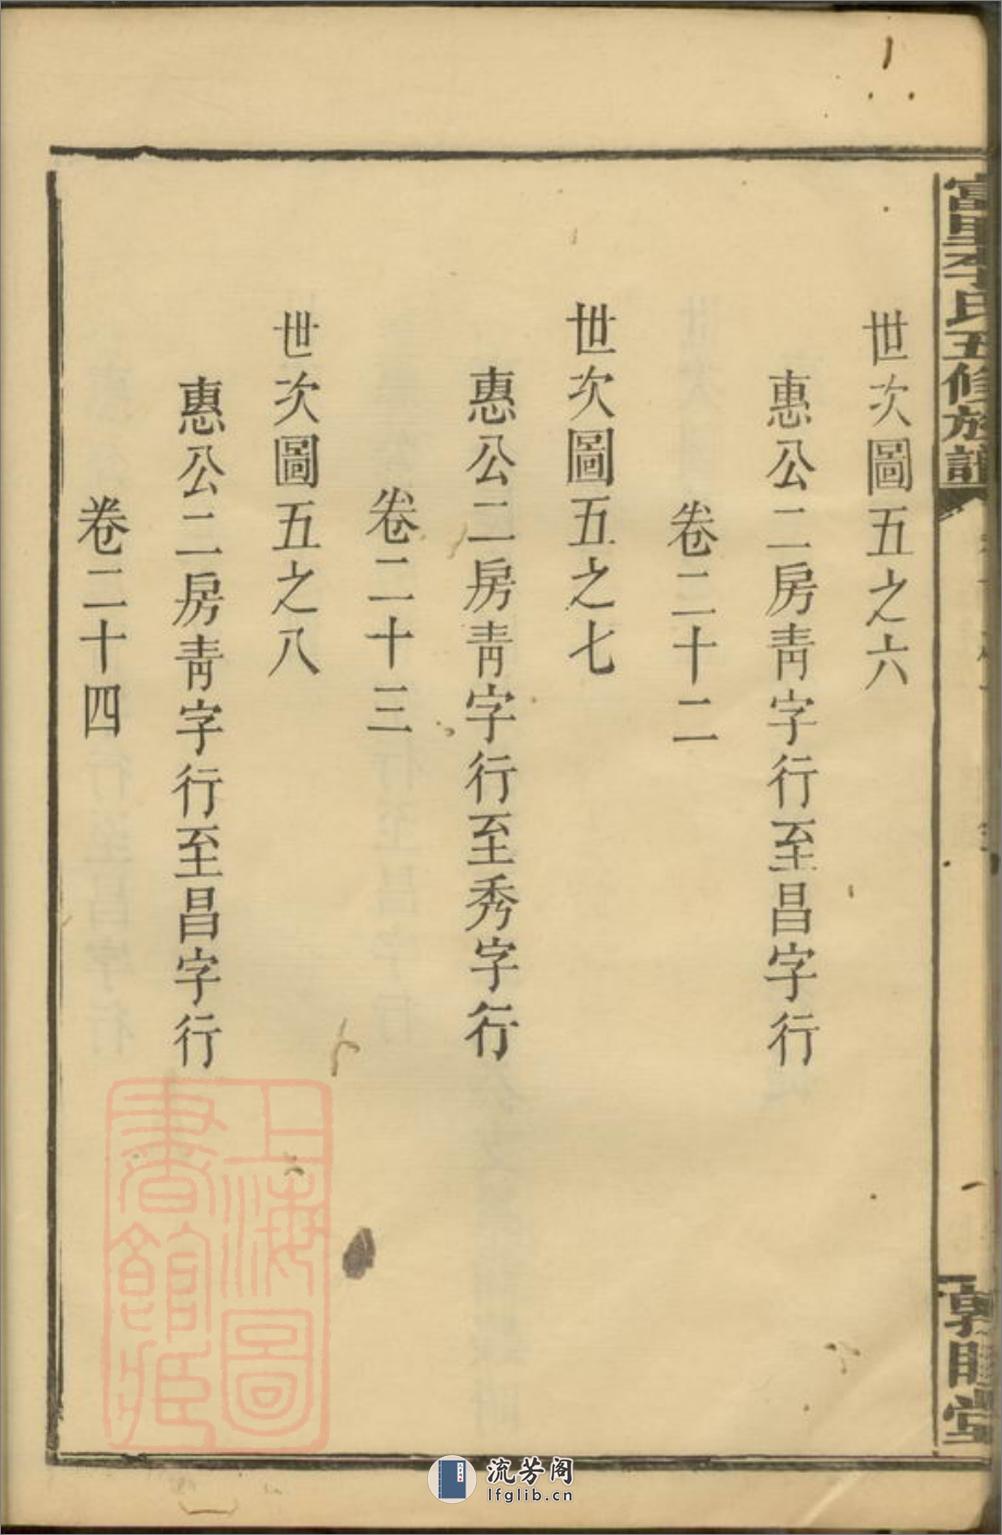 富里李氏五修族譜
敦睦堂
世次圖五之六
惠公二房靑字行至昌字行
卷二十二
世次圖五之七
惠公二房靑字行至秀字行
卷二十三
世次圖五之八
惠公二房靑字行至昌字行
卷二十四
上海圖
書館藏
流芳阁
lfglib.cn